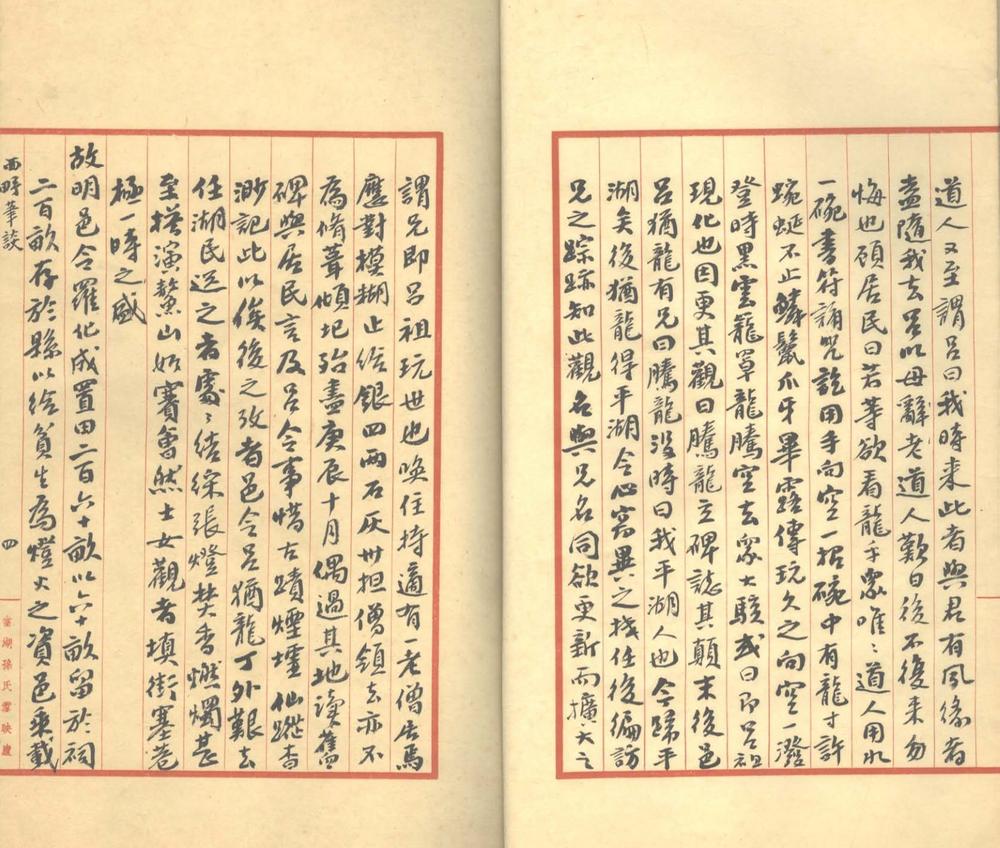 道人又至謂呂曰我時来此者與君有夙缘者
盍隨我去呂以母辭老道人歎曰後不復来勿
悔也顾居民曰若等欲看龍乎衆唯〻道人用水
一碗書符誦咒訖用手向空一招碗中有龍寸許
蜿蜒不止鳞鬣爪牙畢露傳玩久之向空一潑
登時黑雲籠罩龍騰空去衆大駭或曰即呂祖
現化也因更其觀曰騰龍立碑誌其顛末後邑
呂猶龍有兄曰騰龍没時曰我平湖人也今歸平
湖矣後猶龍得平湖令心窃異之抵任後徧訪
兄之踪跡知此觀名與兄名同欲更新而擴大之
謂兄即呂祖玩世也唤住持適有一老僧居焉
應對模糊止给银四两石灰卅担僧領去亦不
為脩葺傾圯殆盡庚辰十月偶過其地讀舊
碑與居民言及呂令事惜古蹟煙墟仙蹤杳
渺記此以俟後之攷者邑令呂猶龍丁外艱去
任湖民送之者處〻结綵張燈焚香燃燭甚
至搭演鰲山如賽會然士女觀者填街塞巷
極一時之盛
故明邑令羅化成置田二百六十畝以六十畝留於祠
二百畝存於縣以给貧生為燈火之資邑乘載
西畴筆談
四
當湖孫氏雪映廬